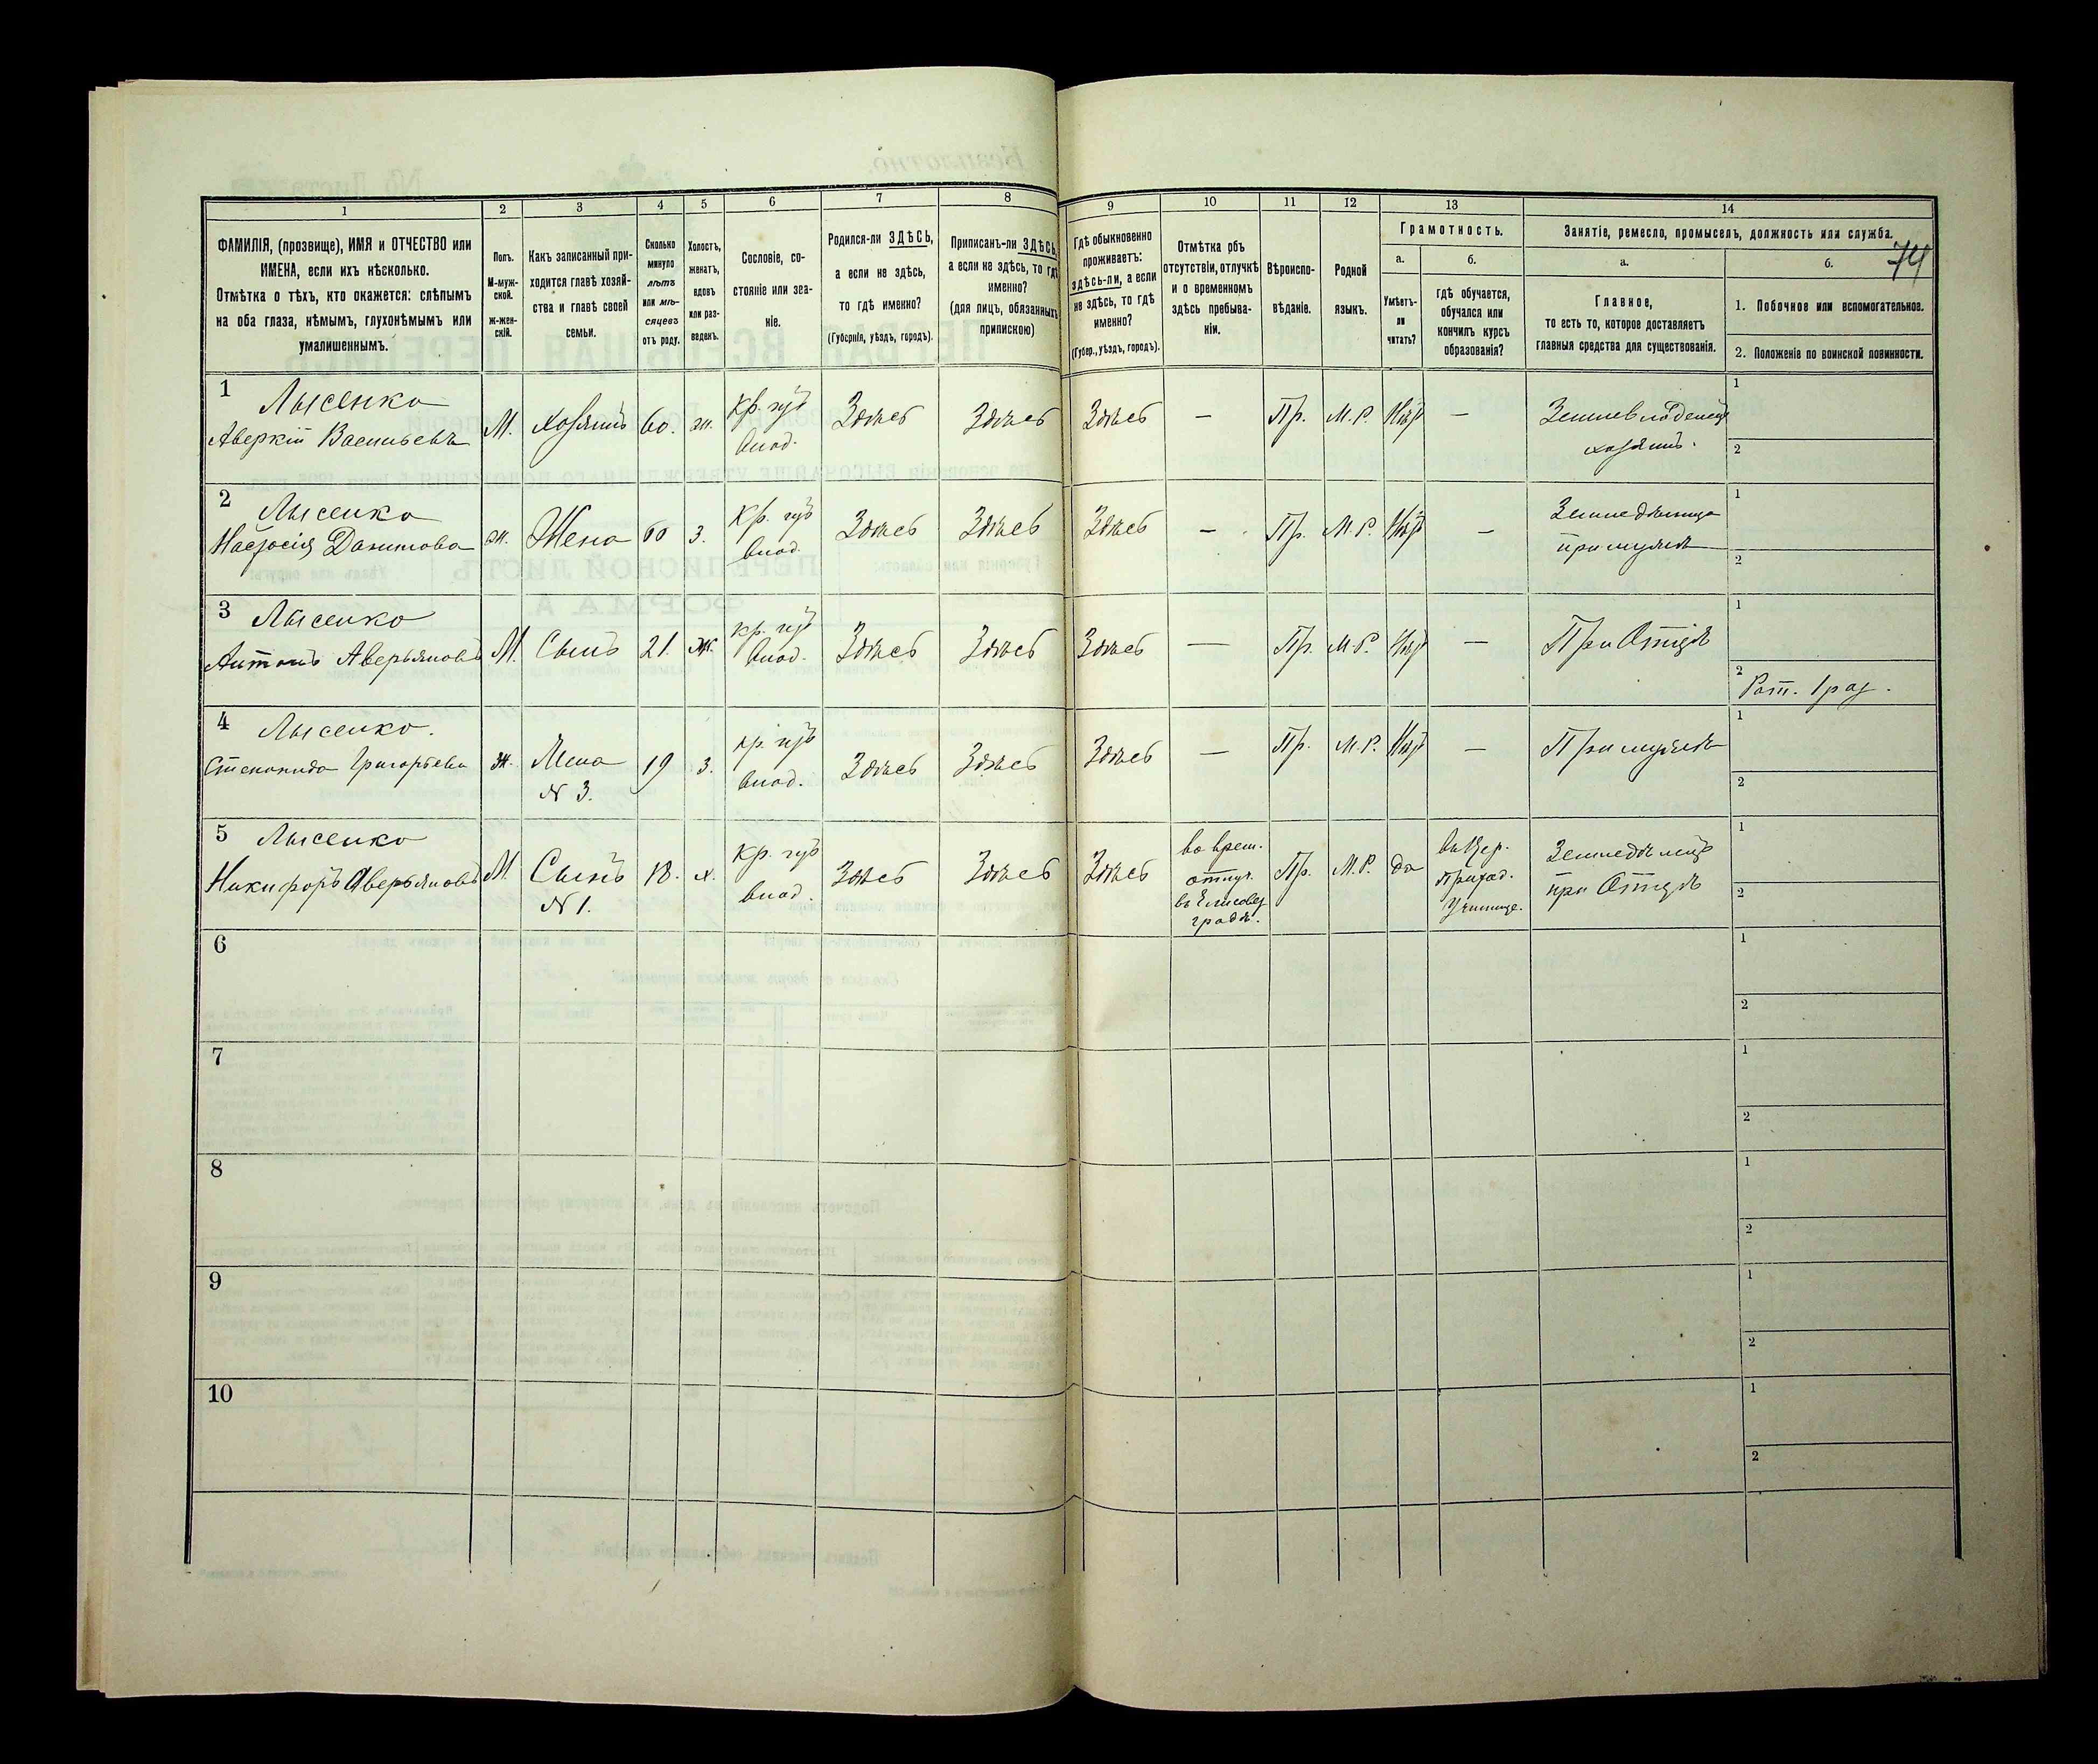 1 2 3 4 5 6 7 8 9 10 11 12 13 14
74
ФАМИЛІЯ, (прозвище), ИМЯ и ОТЧЕСТВО или
ИМЕНА, если ихъ нѣсколько.
Отмѣтка о тѣхъ, кто окажется: слѣпымъ
на оба глаза, нѣмымъ, глухонѣмымъ или
умалишеннымъ.
Полъ.
М-муж-
ской.
ж-жен-
скій.
Какъ записанный при-
ходится главѣ хозяй-
ства и главѣ своей
семьи.
Сколько
минуло
лѣтъ
или мѣ-
сяцевъ
отъ роду.
Холостъ,
женатъ,
вдовъ
или раз-
веденъ.
Сословіе, со-
стояніе или зва-
ніе.
Родился-ли ЗДѢСЬ,
а если не здѣсь,
то гдѣ именно?
(Губернія, уѣздъ, городъ).
Приписанъ-ли ЗДѢСЬ,
а если не здѣсь, то гдѣ
именно?
(для лицъ, обязанныхъ
припискою)
Гдѣ обыкновенно
проживаетъ:
здѣсь-ли, а если
не здѣсь, то гдѣ
именно?
(Губер., уѣздъ, городъ).
Отмѣтка объ
отсутствіи, отлучкѣ
и о временномъ
здѣсь пребыва-
ніи.
Вѣроиспо-
вѣданіе.
Родной
языкъ.
Грамотность.
а.
Умѣетъ-
ли
читать?
б.
гдѣ обучается,
обучался или
кончилъ курсъ
образованія?
Занятіе, ремесло, промыселъ, должность или служба.
а.
Главное,
то есть то, которое доставляетъ
главныя средства для существованія.
б.
1. Побочное или вспомогательное.
2. Положеніе по воинской повинности.
1 Лысенко
Аверкій Васильевъ
М.
хозяинъ
60.
ж.
Кр.
Влад.
Здѣсь
Здѣсь
Здѣсь
—
Пр.
М.Р.
Нѣтъ
—
Землевладелецъ
хозяинъ.
1
2
2 Лысенко
Настасія Данилова
ж.
Жена
60
З.
Кр.
Влад.
Здѣсь
Здѣсь
Здѣсь
—
Пр.
М.Р.
Нѣтъ
—
при мужѣ
1
2
3 Лысенко
Антонъ Аверьяновъ
М.
Сынъ
21.
Ж.
Кр.
Влад.
Здѣсь
Здѣсь
Здѣсь
—
Пр.
М.Р.
Нѣтъ
—
При Отцѣ
1
2
Рат. 1 раз.
4 Лысенко.
Степанида Григорьева
ж.
Жена
N 3.
19
З.
Кр.
Влад.
Здѣсь
Здѣсь
Здѣсь
—
Пр.
М.Р.
Нѣтъ
—
При мужѣ
1
2
5 Лысенко
Никифоръ Аверьяновъ
М
Сынъ
N 1.
18.
х.
Кр.
Влад.
Здѣсь
Здѣсь
Здѣсь
во врем.
отлуч.
въ Елисавет
градѣ.
Пр.
М.Р.
да
въ Цер.
Приход.
Училище.
Земледѣлецъ
при Отцѣ
1
2
6
1
2
7
1
2
8
1
2
9
1
2
10
1
2